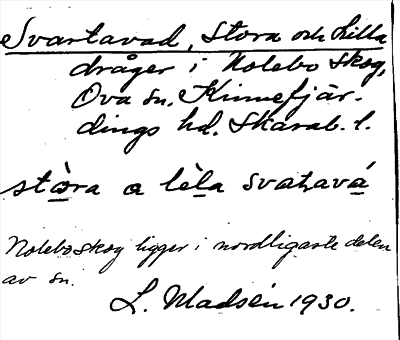 Svartavad, Stora och Lilla
dråger i Nolebo skog,
Ova sn. Kinnefjär-
dings hd. Skarab. l.
stòra a lèla svatavá
Noleboskog ligger i nordligaste delen
av sn.
L. Madsén 1930.